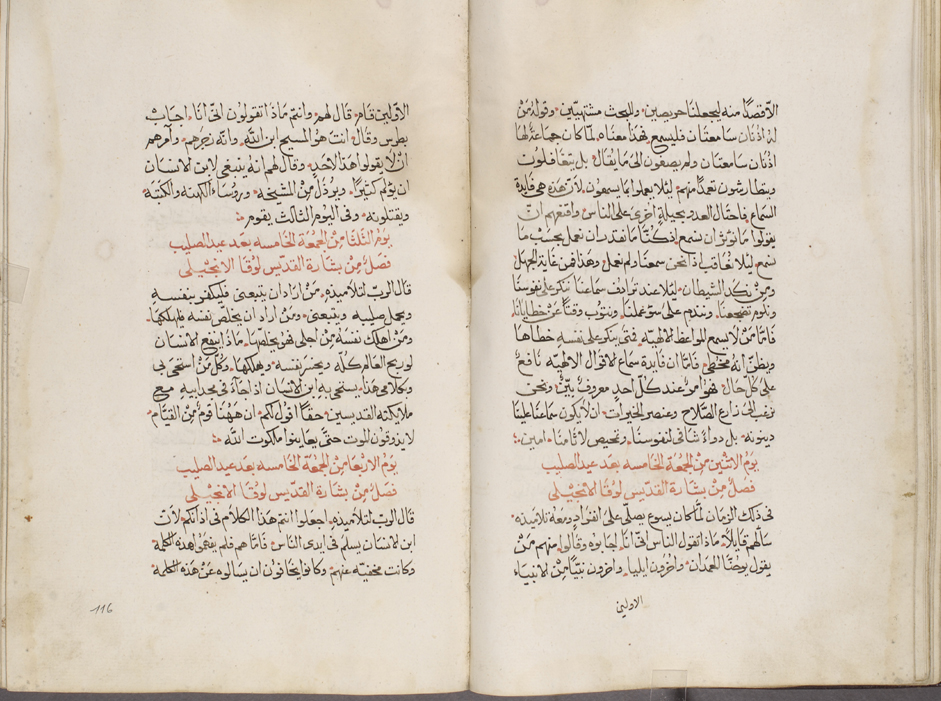 الا قصدًا منه ليجعلنا حريصين وللبحث مشتهيين وقوله من
له اذنان سامعتان فليسمع هذا معناه لما كان جماعة لها
اذنان سامعتان ولم يصغون الى ما يقال بل يتغافلون
ويتطارشون تعمدًا منهم ليلا يعملوا بما يسمعون لان هذه هي فايدة
السماع فاحتال العدو بحيلة اخرى على الناس واقنعهم ان
يقولوا ما نوثر ان نسمع اذ كنا ما نقدر ان نعمل بحسب ما
نسمع ليلا نعاقب اذا نحن سمعنا ولم نعمل وهذا فمن غاية الجهل
ومن نكد الشيطان لاننا عند تواليف سماعنا نبكي على نفوسنا
ونلوم تضجعنا ونندم على سوّ عملنا ونتوب وقتًا عن خطايانا
فاما من لا يسمع المواعظ الالهيه فمتى يبكي على نفسه خطاها
ويظن انه مخطي فاما ان فايدة سماع الاقوال الالهيه نافع
على كل حال فهو امر عند كل احد معروف بيّن ونحن
نرغب الى زارع الصلاح وعنصر الخيرات ان لا يكون سماعنا علينا
دينونه بل دواءً شافي لنفوسنا وتمحيص لاثامنا امين
يوم الاثنين من الجمعة الخامسه بعد عيد الصليب
فصل من بشارة القديس لوقا الانجيلي
في ذلك الزمان لما كان يسوع يصلي على انفراد ومعه تلاميذه
سالهم قايلا ماذا تقول الناس اني انا اجابوه وقالوا منهم من
يقول يوحنا المعمدان واخرون ايليا واخرون نبيًا من الانبياء
الاولين
الاولين قام قال لهم وانتم ماذا تقولون اني انا اجاب
بطرس وقال انت هو المسيح ابن الله وانه زجرهم وامرهم
ان لا يقولوا هذا لاحد وقال لهم انه ينبغي لابن الانسان
ان يولم كثيرًا ويرذل من المشيخه وروساء الكهنة والكتبه
ويقتلونه وفي اليوم الثالث يقوم
يوم الثلثا من الجمعة الخامسه بعد عيد الصليب
فصل من بشارة القديس لوقا الانجيلي
قال الرب لتلاميذه من اراد ان يتبعني فليكفر بنفسه
ويحمل صليبه ويتبعني ومن اراد ان يخلص نفسه فليهلكها
ومن اهلك نفسه من اجلي فهو يخلصها ماذا ينفع الانسان
لو ربح العالم كله ويخسر نفسه ويهلكها وكل من استحى بي
وبكلامي هذا يستحي به ابن الانسان اذا جاء في مجد ابيه مع
ملايكته القديسين حقًا اقول لكم ان ههنا قوم من القيام
لا يذوقون الموت حتى يعاينوا ملكوت الله
يوم الاربعا من الجمعة الخامسه بعد عيد الصليب
فصل من بشارة القديس لوقا الانجيلي
قال الرب لتلاميذه اجعلوا انتم هذا الكلام في اذانكم لان
ابن الانسان يسلم في ايدي الناس فاما هم فلم يفهموا هذه الكلمة
وكانت مخفيه عنهم وكانوا يخافون ان يسالوه عن هذه الكلمة
116